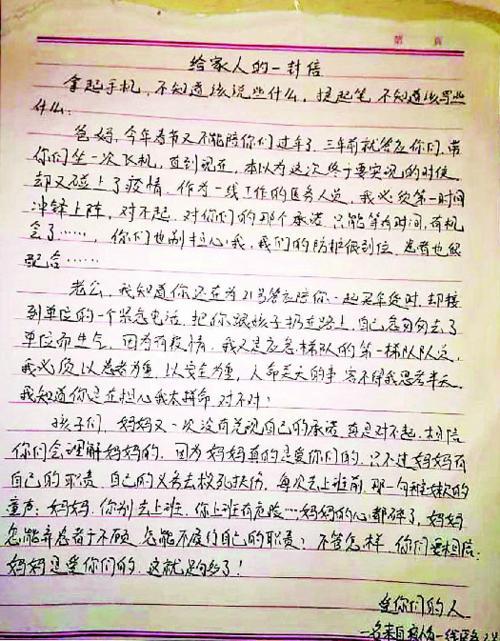 第 页
给家人的一封信
拿起手机,不知道该说些什么,提起笔,不知道该写些
什么.
爸妈,今年春节又不能陪你们过年了,三年前就答应你们,带
你们坐一次飞机,直到现在,本以为这次终于要实现的时候
却又碰上了疫情.作为一线工作的医务人员,我必须第一时间
冲锋上阵,对不起,对你们的那个承诺,只能等有时间,有机
会了……,你们也别担心我,我们的防护很到位,患者也很
配合……
老公,我知道你还在为21号答应陪你一起买年货时,却接
到单位的一个紧急电话,把你跟孩子扔在路上,自己急匆匆去了
单位而生气,因为有疫情,我又是应急梯队的第一梯队队员,
我必须以患者为重,以安全为重,人命关天的事容不得我思考半天,
我知道你是在担心我太拼命,对不对!
孩子们,妈妈又一次没有兑现自己的承诺,真是对不起,相信
你们会理解妈妈的,因为妈妈真的是爱你们的,只不过妈妈有
自己的职责,自己的义务去救死扶伤,每次去上班前,那一句稚嫩的
童声:妈妈,你别去上班,你上班有危险…妈妈的心都碎了,妈妈
怎能弃患者于不顾,怎能不履行自己的职责!不管怎样,你们要相信:
妈妈是爱你们的,这就足够了!
爱你们的人
一名来自